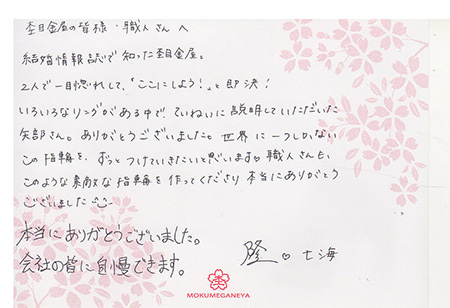 杢目金屋の皆様・職人さんへ
結婚情報誌で知った杢目金屋。
2人で一目惚れして、「ここにしよう!」と即決!
いろいろなリングがある中で、ていねいに説明していただいた
矢部さん。ありがとうございました。世界に一つしかない
この指輪を、ずっとつけていきたいと思います。職人さんも、
このような素敵な指輪を作ってくださり本当にありがとう
ございました
本当にありがとうございました。
会社の皆に自慢できます。
隆♡七海
MOKUMEGANEYA